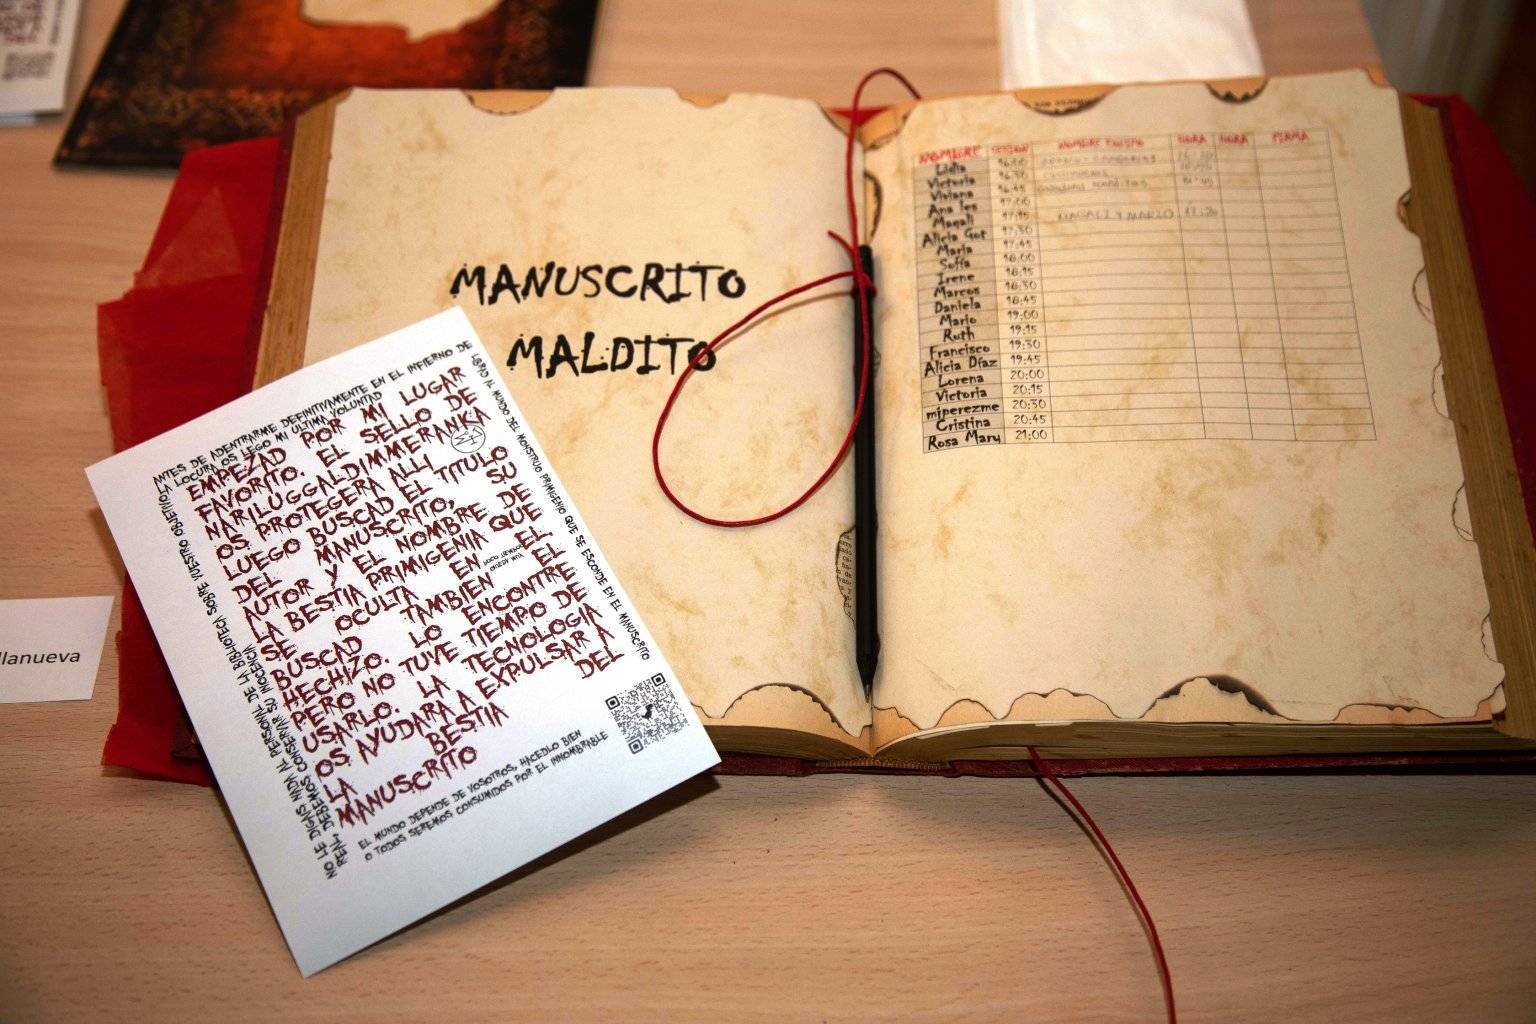 MANUSCRITO
MALDITO
ANTES DE ADENTRARME DEFINITIVAMENTE EN EL INFIERNO DE
LA LOCURA OS LEGO MI ULTIMA VOLUNTAD
LIBRAD AL MUNDO DEL MONSTRUO PRIMIGENIO QUE SE ESCONDE EN EL MANUSCRITO
EMPEZAD POR MI LUGAR
FAVORITO. EL SELLO DE
NARILUGGALDIMMERANKA
OS PROTEGERA ALLI
LUEGO BUSCAD EL TITULO
DEL MANUSCRITO, SU
AUTOR Y EL NOMBRE DE
LA BESTIA PRIMIGENIA QUE
SE OCULTA EN EL
BUSCAD TAMBIEN EL
HECHIZO. LO ENCONTRE
PERO NO TUVE TIEMPO DE
USARLO. LA TECNOLOGIA
OS AYUDARA A EXPULSAR A
LA BESTIA DEL
MANUSCRITO
EL MUNDO DEPENDE DE VOSOTROS, HACEDLO BIEN
O TODOS SEREMOS CONSUMIDOS POR EL INNOMBRABLE
NO LE DIGAIS NADA AL PERSONAL DE LA BIBLIOTECA SOBRE VUESTRO OBJETIVO
REAL, DEBEMOS CONSERVAR SU INOCENCIA
llanueva
NOMBRE SESION NOMBRE EQUIPO HORA HORA FIRMA
Lidia 16:00
Victoria 16:30
Viviana 16:45
Ana Ies 17:00
Magali 17:15 MAGALI Y MARIO 17:20
Alicia Got 17:30
Maria 17:45
Soffa 18:00
Irene 18:15
Marcos 18:30
Daniela 18:45
Mario 19:00
Ruth 19:15
Francisco 19:30
Alicia Díaz 19:45
Lorena 20:00
Victoria 20:15
miperezme 20:30
Cristina 20:45
Rosa Mary 21:00